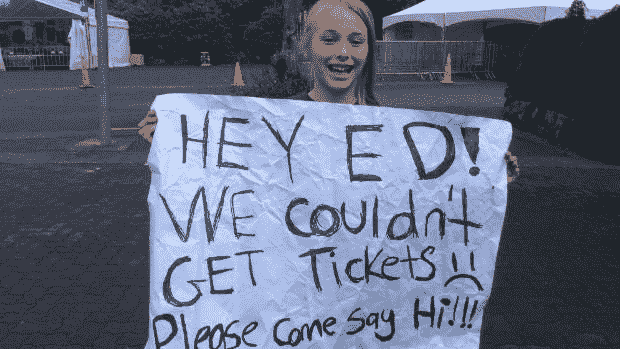 HEY ED!
WE couldn't
GET TickeTs
Please come say Hi!!!